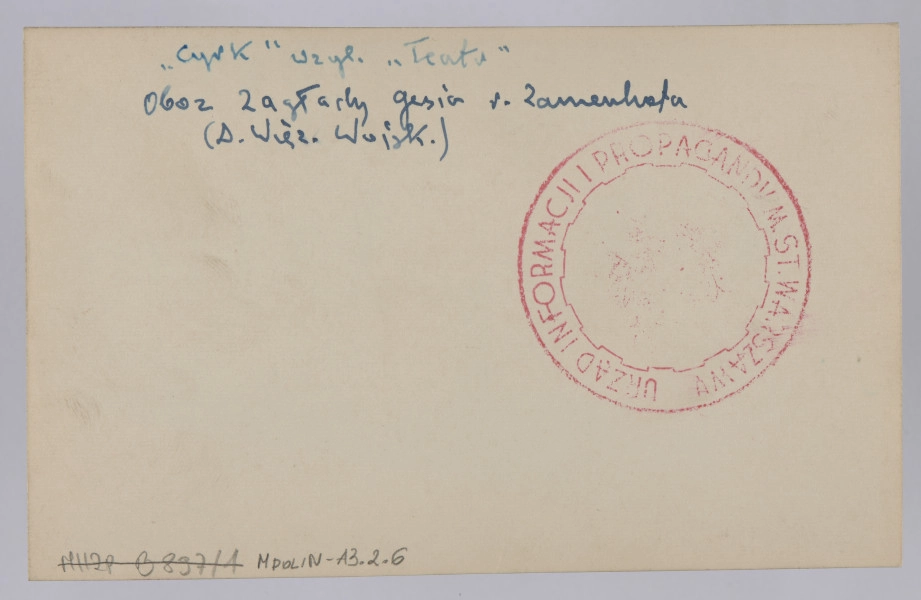 „Cyrk" wzgl. „Teatr"
Oboz Zagłady Gęsia r. Zamenhofa
(D. Więz. Wojsk.)
URZĄD INFORMACJI I PROPAGANDY M.ST.WARSZAWA
MHŻP B 897/1 MPOLIN-A3.2.6